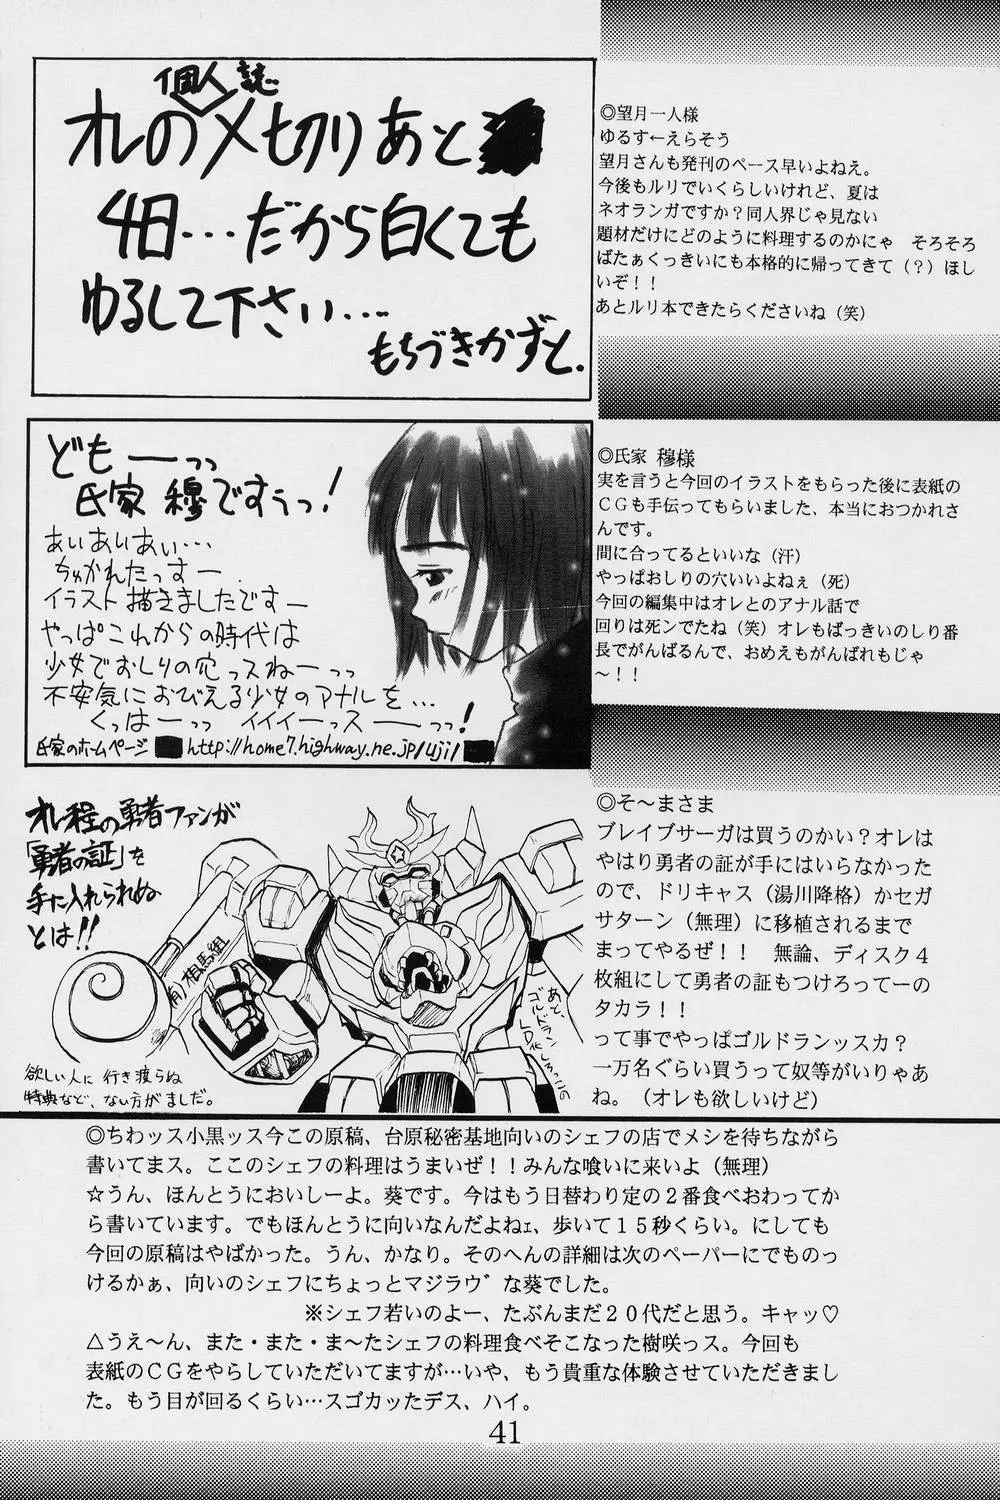 個人誌
オレの〆切りあと
4日…だから白くても
ゆるして下さい…
もちづきかずと.
◎望月一人様
ゆるす←えらそう
望月さんも発刊のペース早いよねえ。
今後もルリでいくらしいけれど、夏は
ネオランガですか？同人界じゃ見ない
題材だけにどのように料理するのかにゃ　そろそろ
ばたぁくっきいにも本格的に帰ってきて（？）ほし
いぞ！！
あとルリ本できたらくださいね（笑）
どもーーっっ
氏家 穆ですぅっ！
あいあいあい…
ちゅかれたっすー
イラスト描きましたですー
◎氏家 穆様
実を言うと今回のイラストをもらった後に表紙の
ＣＧも手伝ってもらいました、本当におつかれさ
んです。
間に合ってるといいな（汗）
オレ程の勇者ファンが
「勇者の証」を
手に入れられぬ
とは!!
(有)相馬組
あと、
ゴルドラン
欲しい人に行き渡らぬ
特典など、ない方がましだ。
◎そ～まさま
ブレイブサーガは買うのかい？オレは
やはり勇者の証が手にはいらなかった
ので、ドリキャス（湯川降格）かセガ
サターン（無理）に移植されるまで
まってやるぜ！！　無論、ディスク４
枚組にして勇者の証もつけろってーの
タカラ！！
って事でやっぱゴルドランッスカ？
一万名ぐらい買うって奴等がいりゃあ
ね。（オレも欲しいけど）
◎ちわッス小黒ッス今この原稿、台原秘密基地向いのシェフの店でメシを待ちながら
書いてまス。ここのシェフの料理はうまいぜ！！みんな喰いに来いよ（無理）
☆うん、ほんとうにおいしーよ。葵です。今はもう日替わり定の２番食べおわってか
ら書いています。でもほんとうに向いなんだよねｪ、歩いて１５秒くらい。にしても
今回の原稿はやばかった。うん、かなり。そのへんの詳細は次のペーパーにでものっ
けるかぁ、向いのシェフにちょっとマジラヴ゛な葵でした。
※シェフ若いのよー、たぶんまだ２０代だと思う。キャッ♡
△うえ～ん、また・また・ま～たシェフの料理食べそこなった樹咲っス。今回も
表紙のＣＧをやらしていただいてますが…いや、もう貴重な体験させていただきまし
た。もう目が回るくらい…スゴカッたデス、ハイ。
41